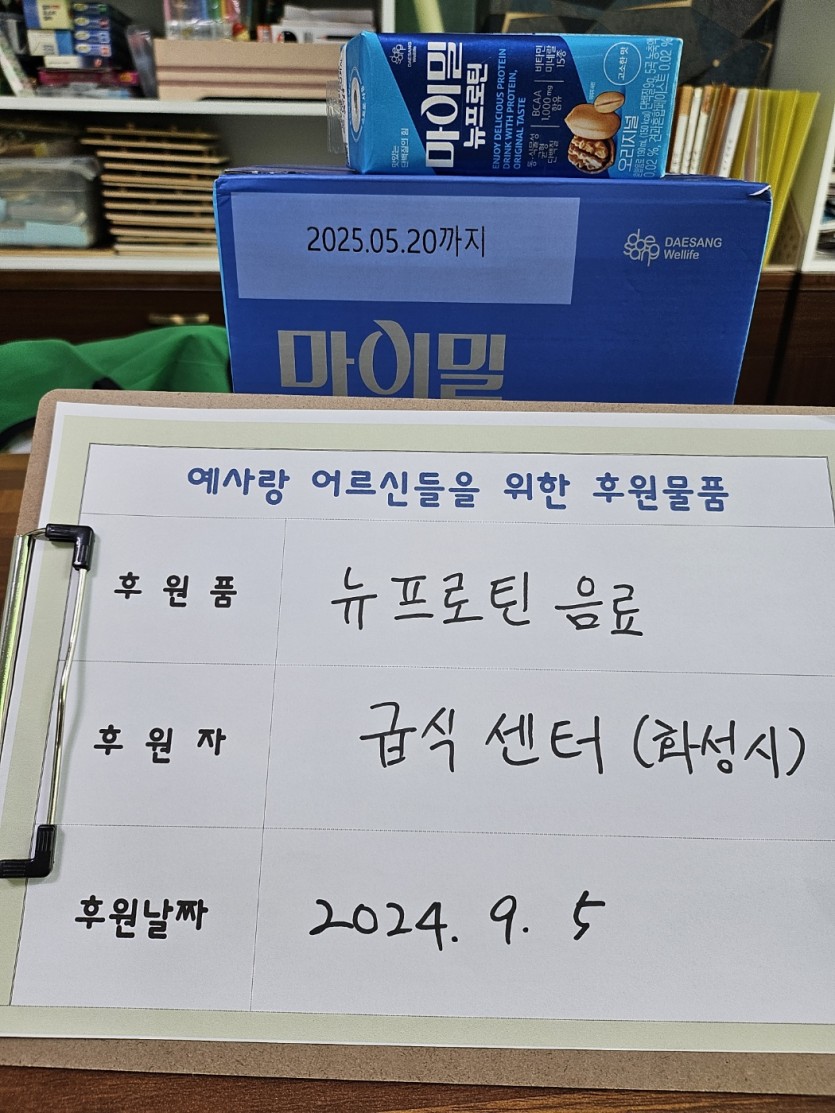 마이밀
뉴프로틴
ENJOY DELICIOUS PROTEIN
DRINK WITH PROTEIN,
ORIGINAL TASTE
BCAA
1,000mg
함유
비타민
미네랄
15종
오리지널
고소한 맛
DAESANG
Wellife
2025.05.20까지
DAESANG
Wellife
마이밀
예사랑 어르신들을 위한 후원물품
후 원 품 뉴프로틴 음료
후 원 자 급식 센터 (화성시)
후원날짜 2024. 9. 5